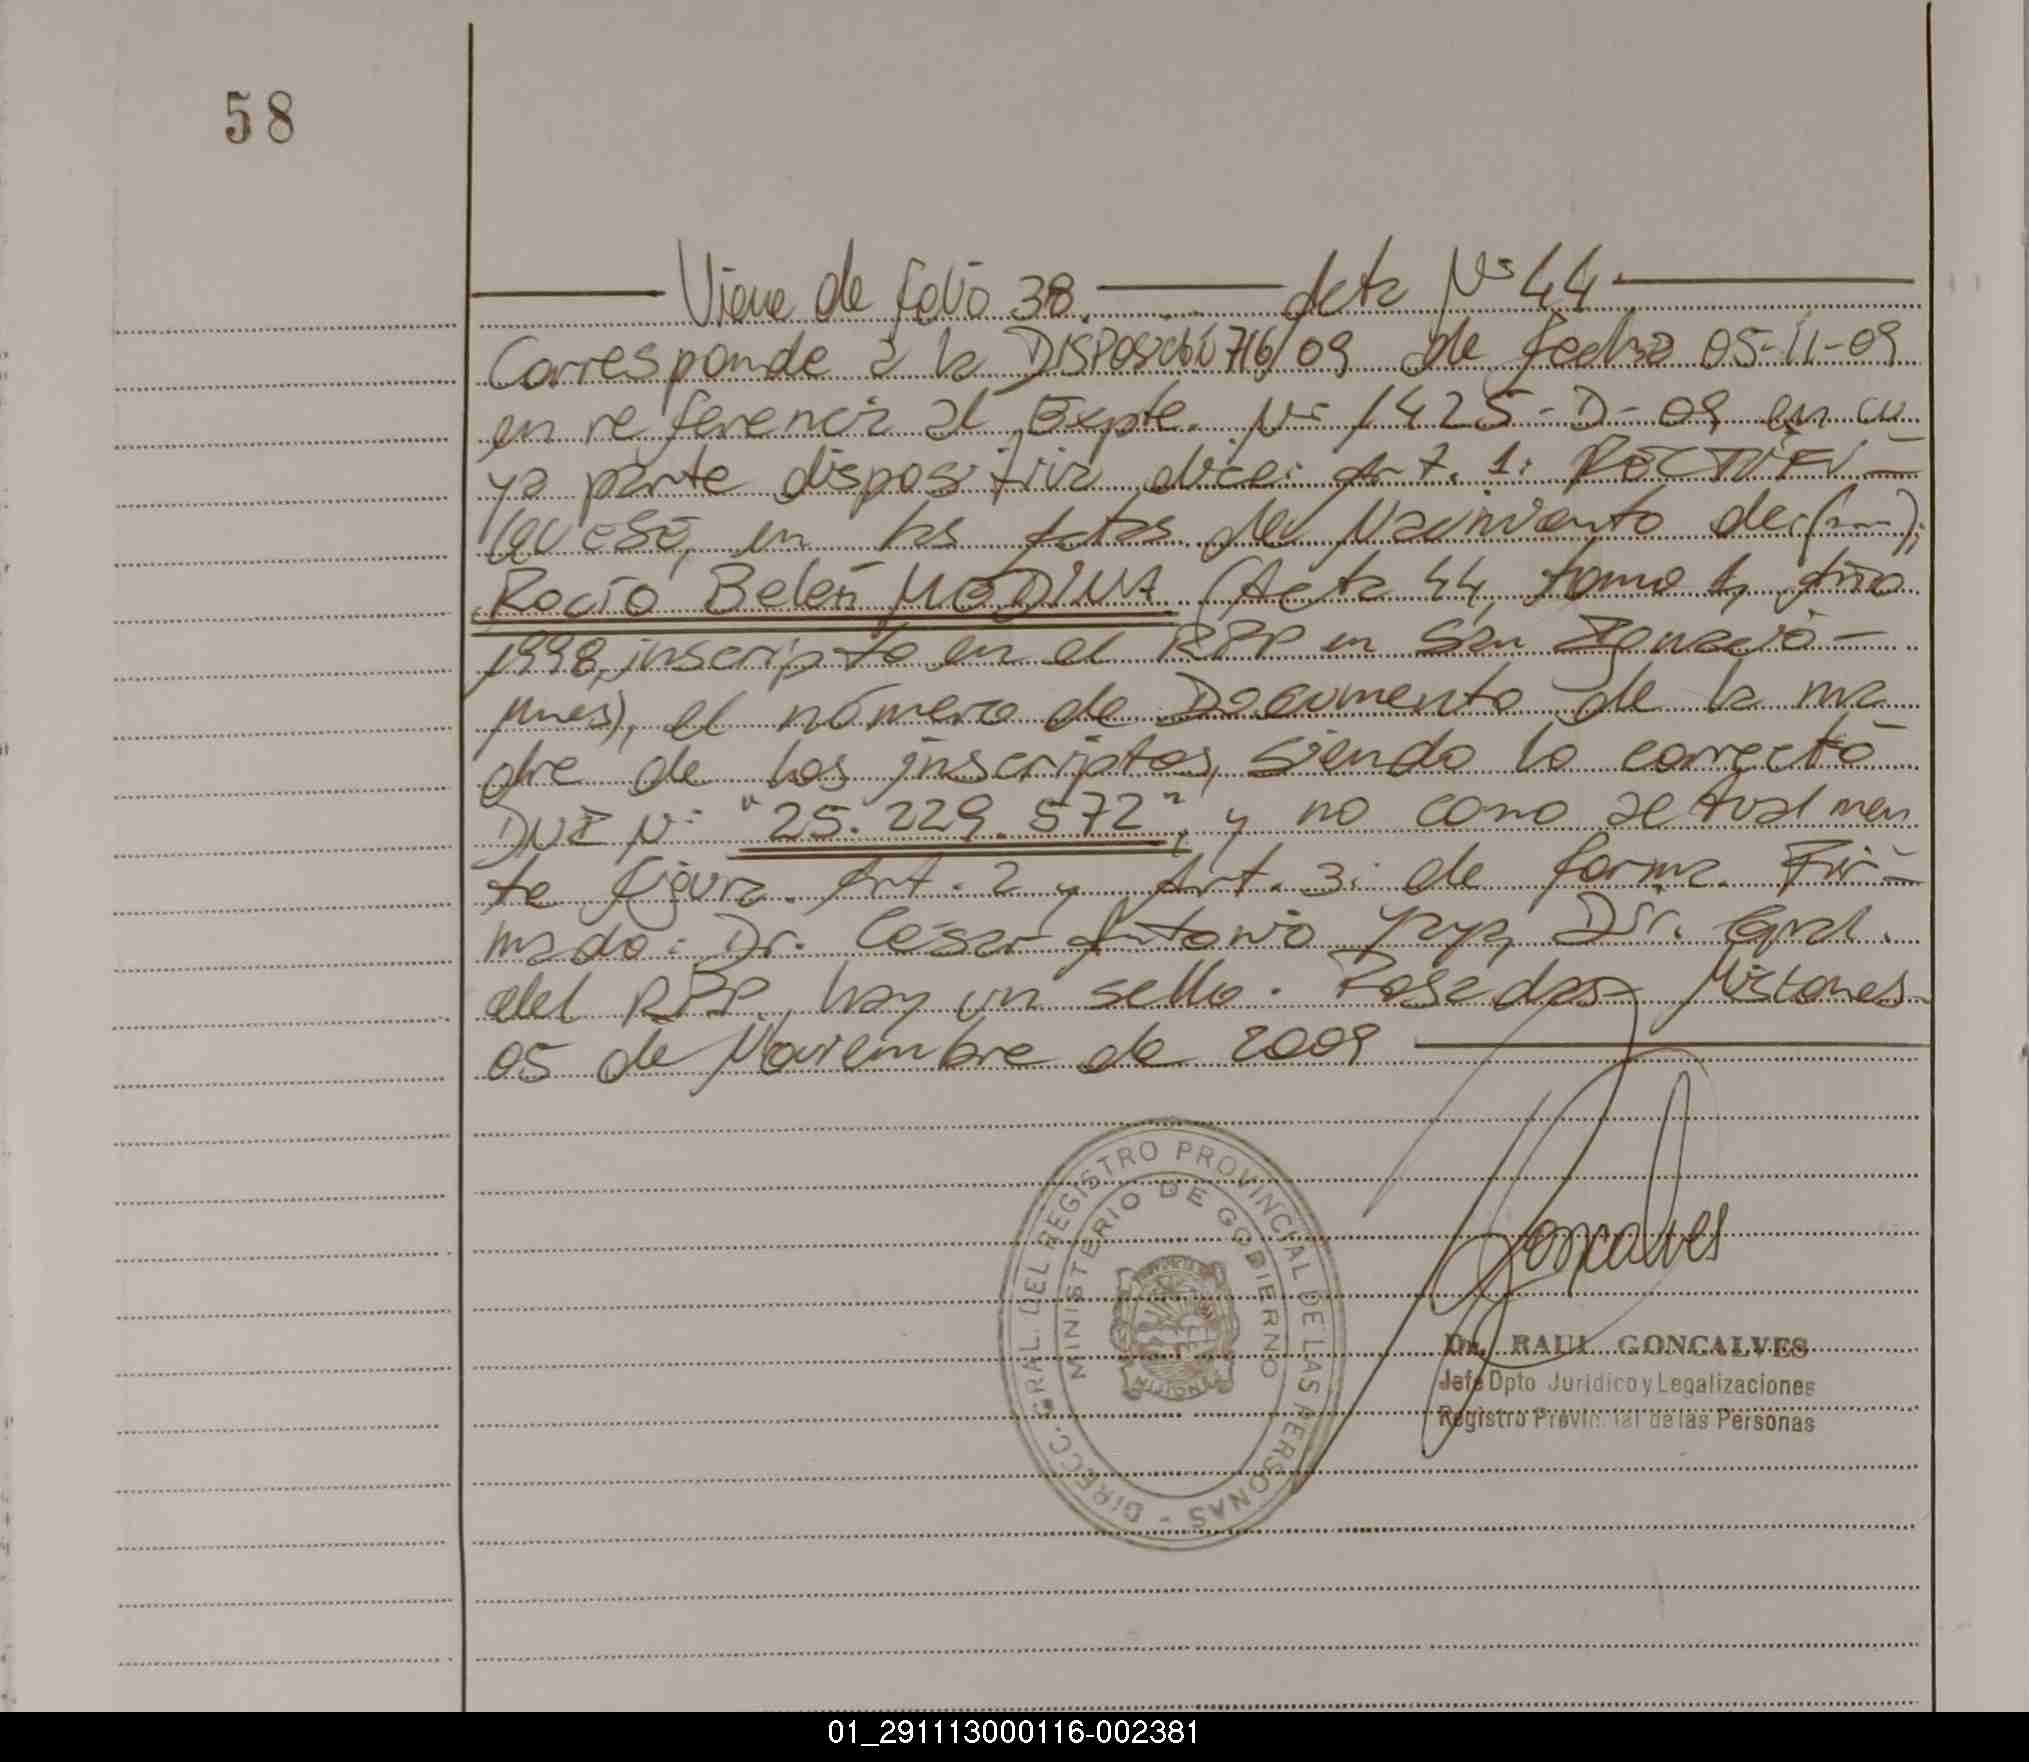 58
Viene de folio 38. Acta Nº 44
Corresponde a la DISPOSICIÓN 716/09 de fecha 05-11-09
en referencia al Expte. Nº 1425-D-09 en cu
ya parte dispositiva dice: Art. 1: RECTIFÍ-
QUESE, en las Actas de Nacimiento de: (...);
Rocío Belén MEDINA (Acta 44, tomo 1, Año
1998, inscripto en el RPP en San Ignacio -
Mnes), el número de Documento de la ma
dre de los inscriptos, siendo lo correcto
DNI Nº "25.229.572", y no como actualmen
te figura. Art. 2 y Art. 3: de forma. Fir-
mado: Dr. César Antonio Yaya, Dir. Gral.
del RPP, hay un sello. Posadas Misiones
05 de Noviembre de 2009
DIRECC. GRAL. DEL REGISTRO PROVINCIAL DE LAS PERSONAS -
MINISTERIO DE GOBIERNO
MISIONES
Goncalves
Dr. RAUL GONCALVES
Jefe Dpto Juridico y Legalizaciones
Registro Provincial de las Personas
01_291113000116-002381